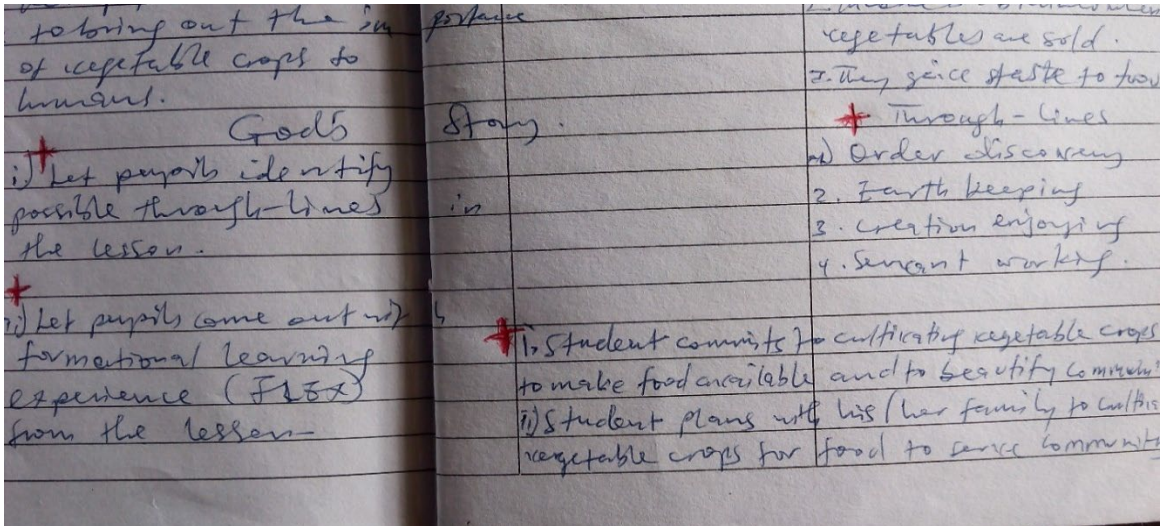 to bring out the importance
of vegetable crops to
humans.
God's Story.
i) Let pupils identify
possible through-lines in
the lesson.
ii) Let pupils come out with
formational learning
experience (FLEX)
from the lesson
vegetables are sold.
3. They give taste to
Through-lines
1) Order discovery
2. Earth keeping
3. Creation enjoying
4. Servant working.
i) Student commits to cultivating vegetable crops
to make food available and to beautify
ii) Student plans with his/her family to
vegetable crops for food to service